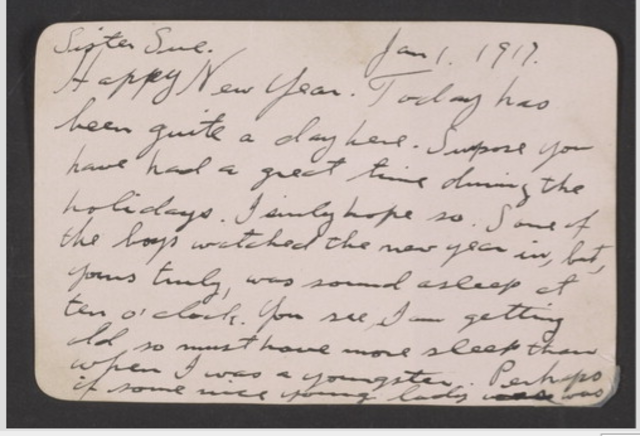 Sister Sue. Jan 1. 1917.
Happy New Year. Today has
been quite a day here. Supose you
have had a great time during the
holidays. I surely hope so. Some of
the boys watched the new year in, but,
yours truly, was sound asleep at
ten o'clock. You see, I am getting
old, so must have more sleep than
when I was a youngster. Perhaps
if some nice young lady was